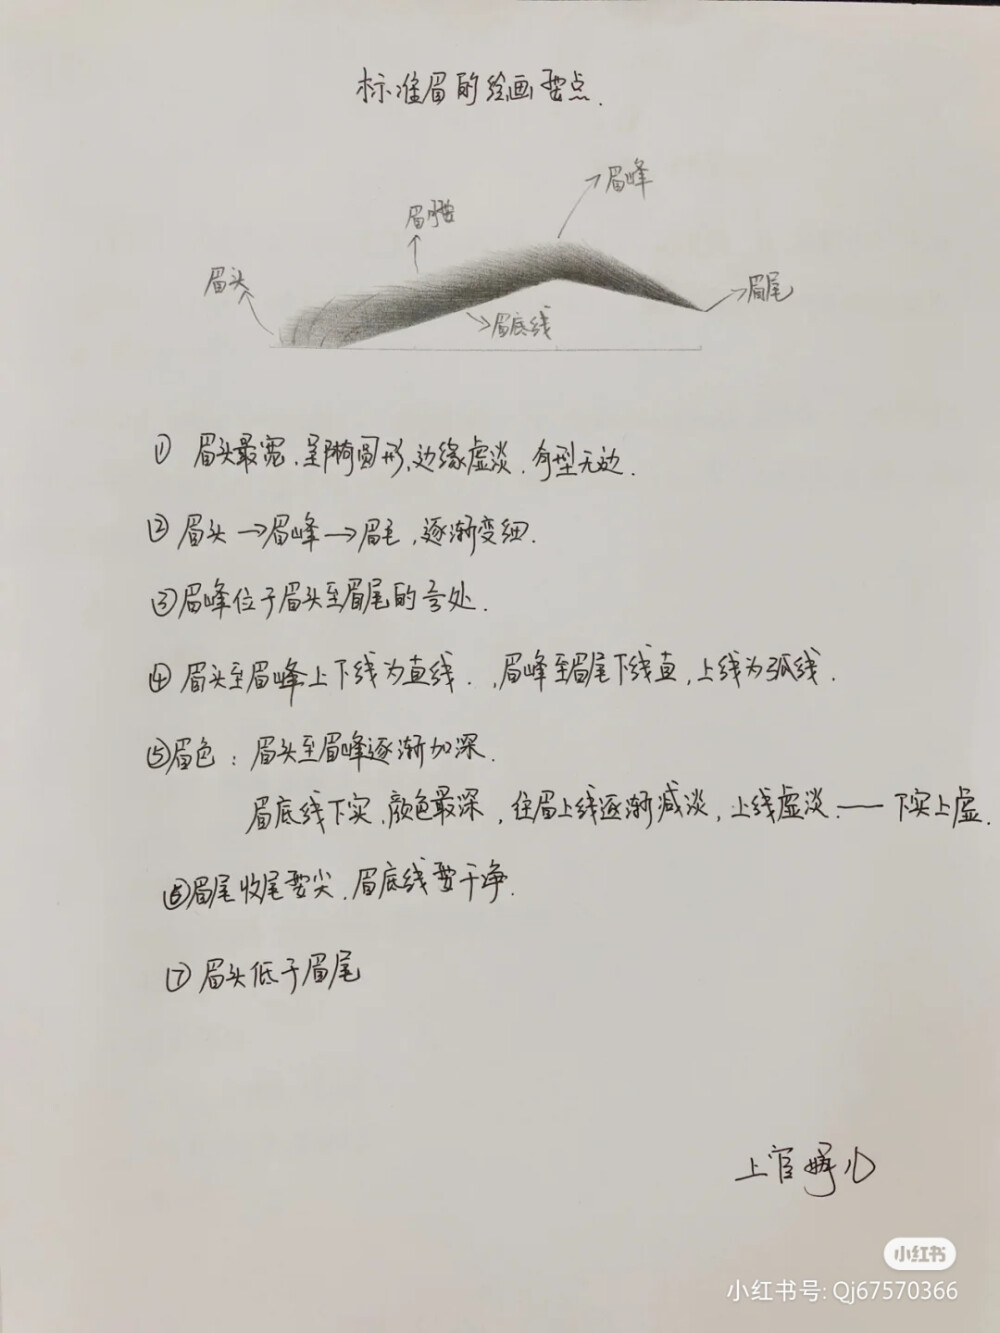 标准眉的绘画要点.
眉峰
眉腰
眉头
眉尾
眉底线
① 眉头最宽.呈椭圆形,边缘虚淡.有型无边.
② 眉头→眉峰→眉毛,逐渐变细.
③眉峰位于眉头至眉尾的 处.
④ 眉头至眉峰上下线为直线.,眉峰至眉尾下线直,上线为弧线.
⑤眉色:眉头至眉峰逐渐加深.
眉底线下实.颜色最深,往眉上线逐渐减淡,上线虚淡.——下实上虚.
⑥眉尾收尾要尖.眉底线要干净.
⑦ 眉头低于眉尾
上官婉儿
小红书
小红书号:Qj67570366